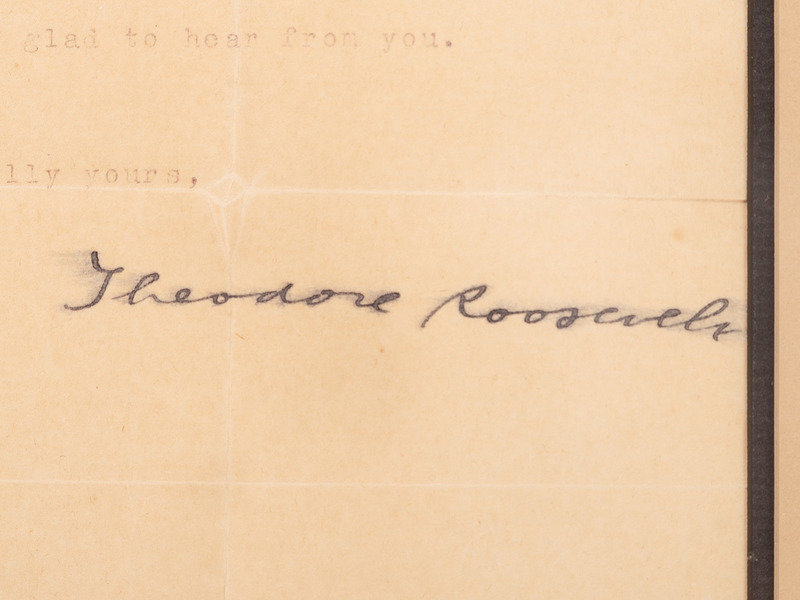 glad to hear from you.
lly yours,
Theodore Roosevelt